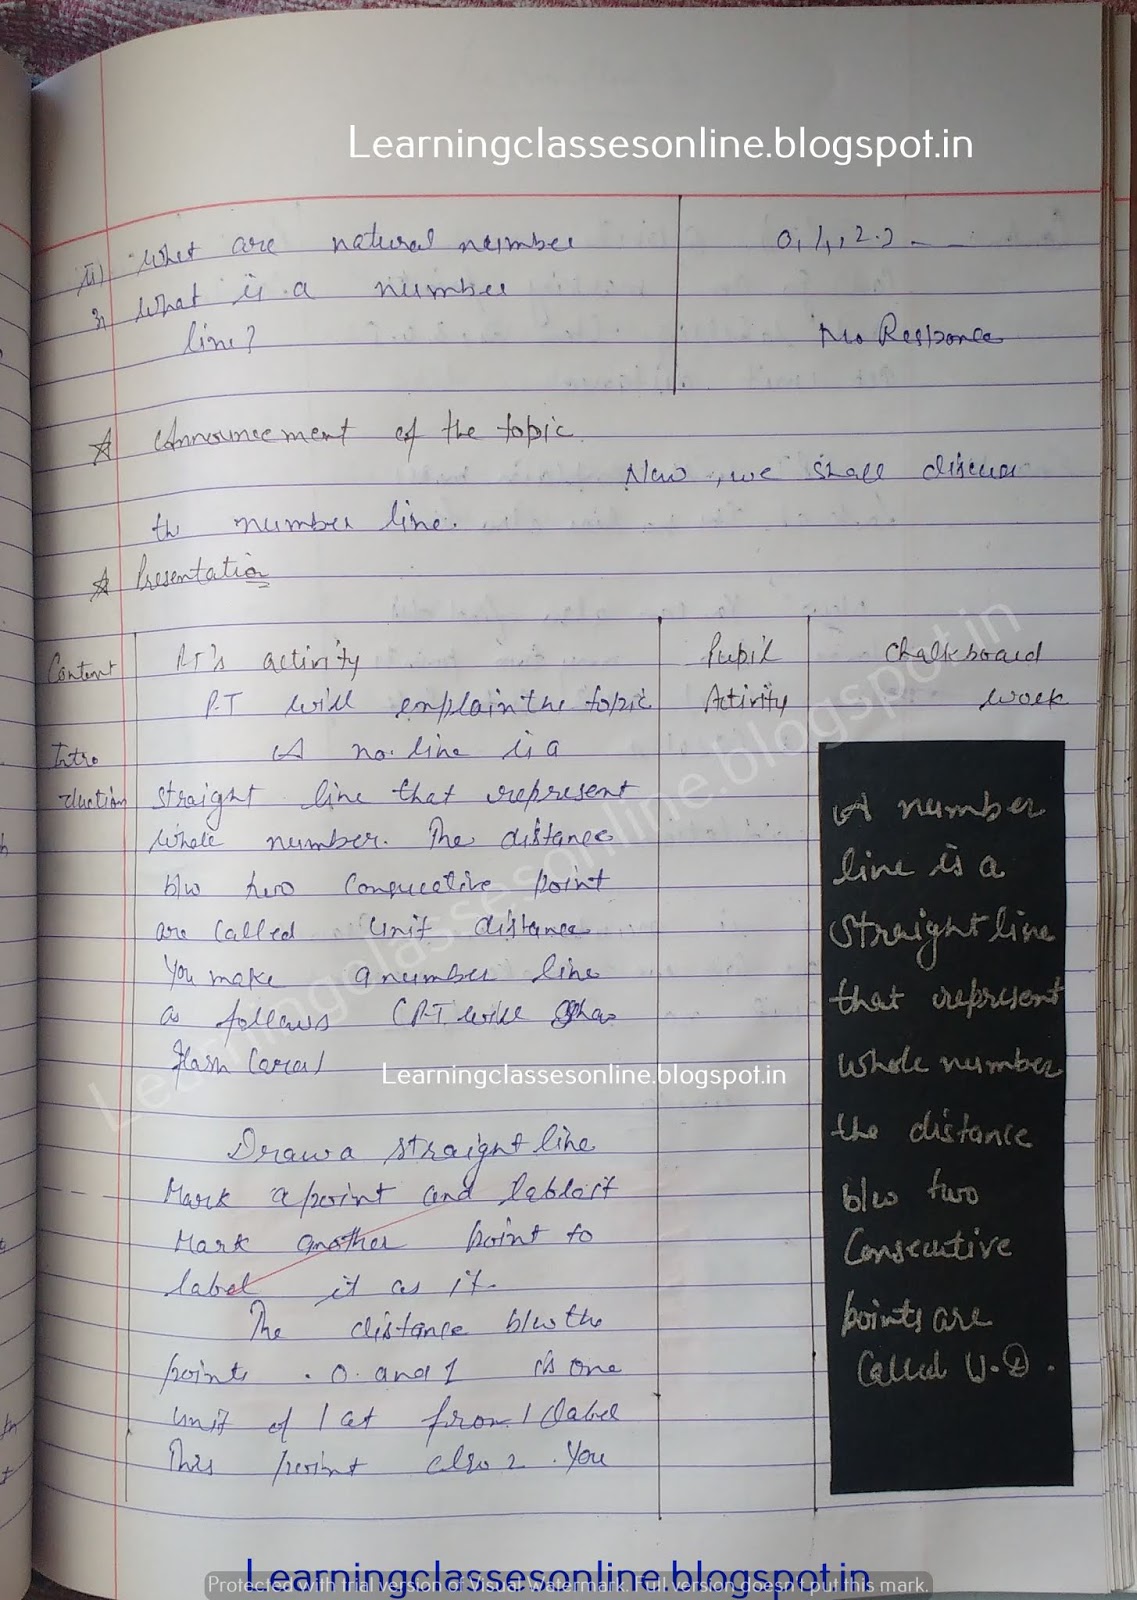 Learningclassesonline.blogspot.in
ii) What are natural number 0, 1, , 2.
3 What is a number
line? No Response
☆ Announcement of the topic
Now, we shall discuss
the number line.
☆ Presentation
Content P.T's activity Pupil Chalkboard
P.T will explain the topic Activity work
Intro A no. line is a
duction straight line that represent
whole number. The distance
b/w two Consecutive point
are Called Unit distance
You make a number line
as follows (P.T will show
flash Card)
Learningclassesonline.blogspot.in
Draw a straight line
Mark a point and lable it
Mark another point to
label it as it.
The distance b/w the
points . 0. and 1 is one
unit of 1 at from 1 label
This point also 2. You
A number
line is a
straight line
that represent
whole number
the distance
b/w two
Consecutive
points are
Called U.D.
Learningclassesonline.blogspot.in
Learningclassesonline.blogspot.in
Protected with trial version of Visual Watermark. Full version doesn't put this mark.